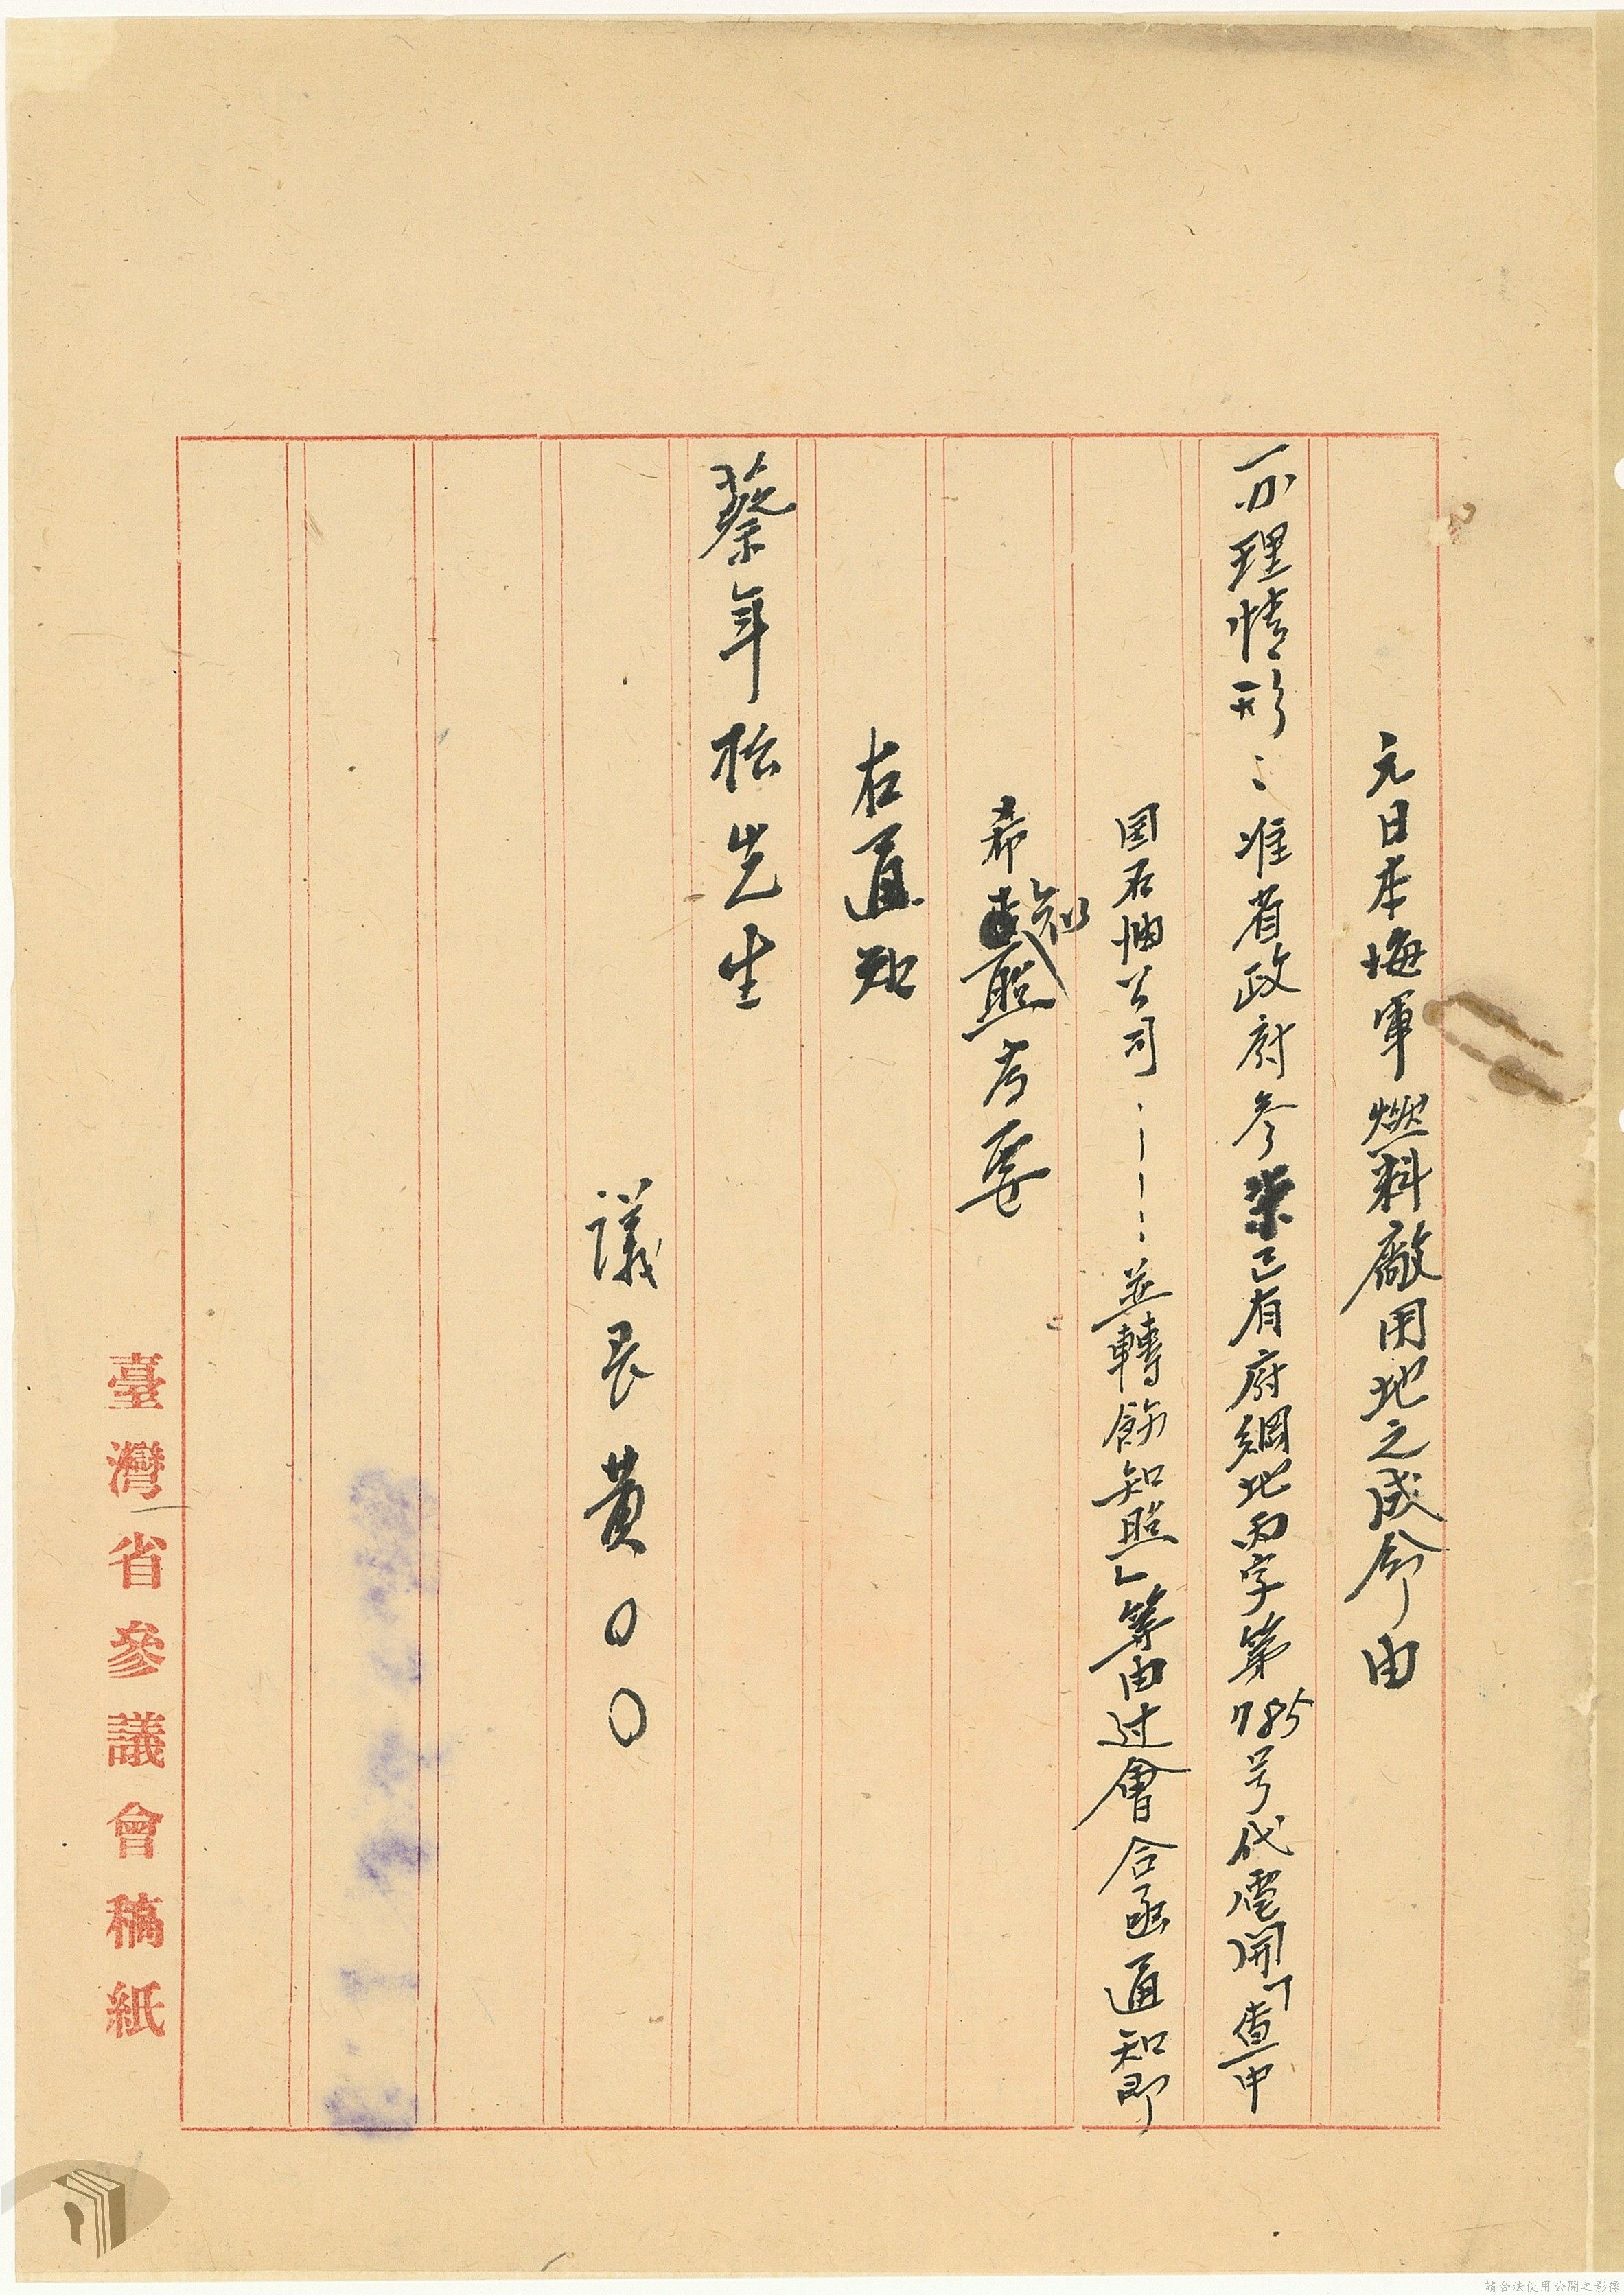 元日本海軍燃料廠用地之成命由
一、办理情形：准省政府参柒已有府綱地丙字第785号代電開「查中
国石油公司……並轉飭知照」等由过會合函通知即
希知照為要
右通知
蔡年松先生
議長黃〇〇
臺灣省參議會稿紙
請合法使用公開之影像